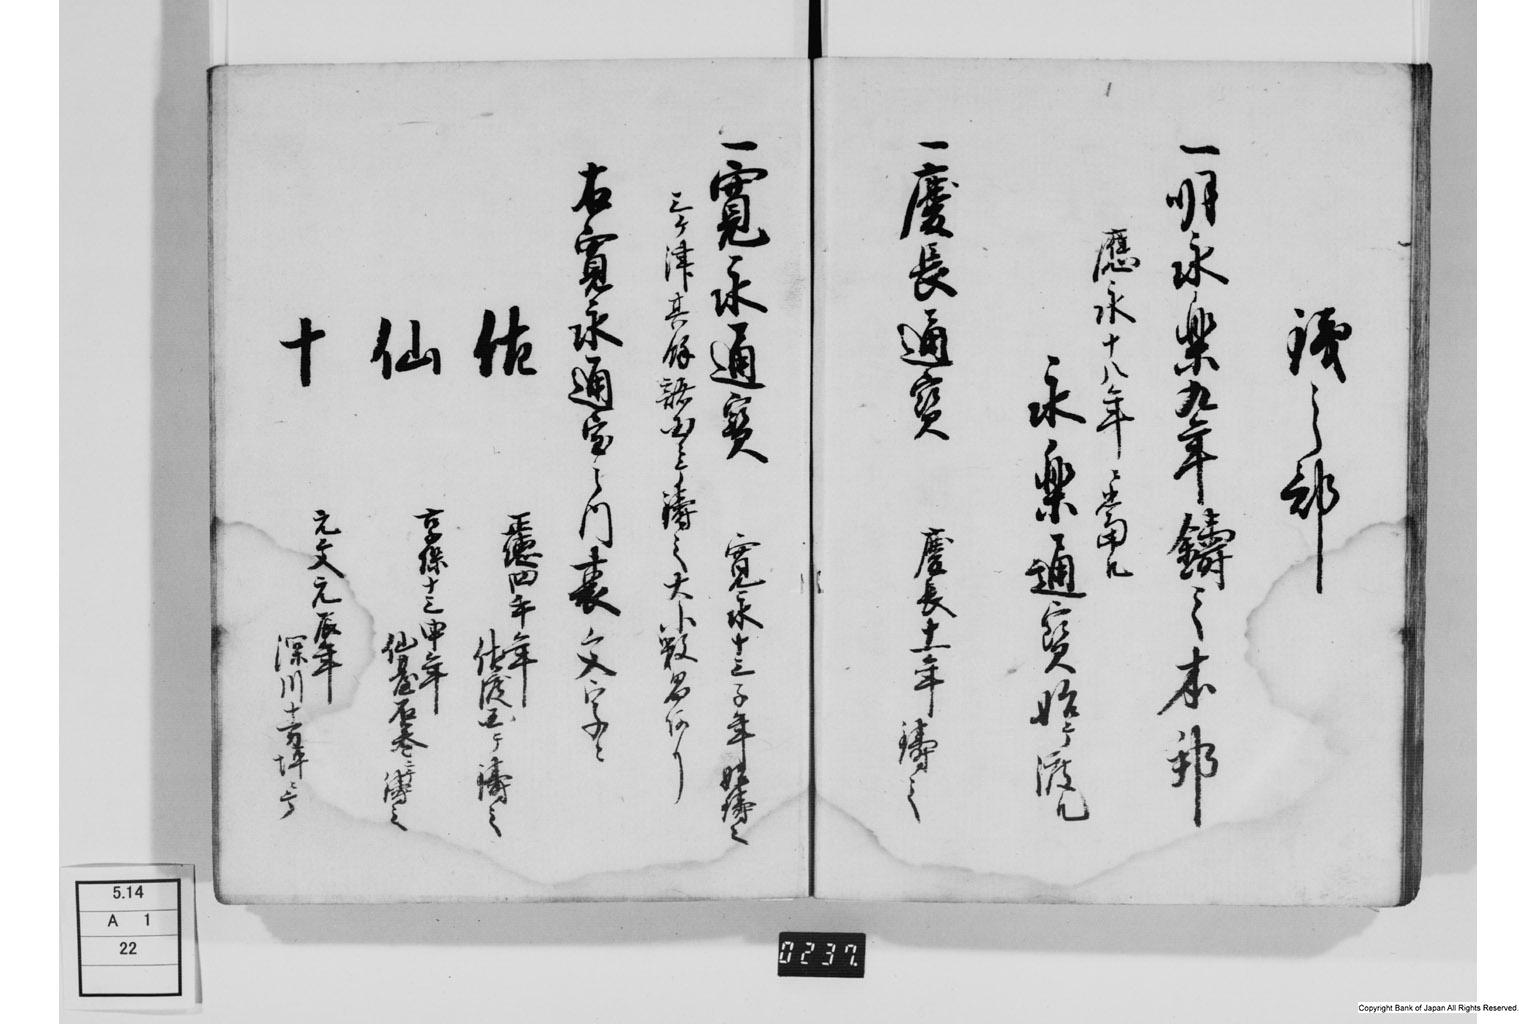 銭之部
一明永楽九年鋳之本邦
應永十八年ニ当ル
永楽通寳始而渡ル
一慶長通寳
慶長十一年鋳之
一寛永通寳
寛永十三子年始鋳之
三ヶ津其餘諸国ニ而鋳之大小数品有リ
右寛永通宝之内裏ニ文字之
佐
正徳四午年
佐渡国ニ而鋳之
仙
享保十三申年
仙臺石巻ニ而鋳之
十
元文元辰年
深川十万坪ニ而
5.14
A 1
22
0237.
Copyright Bank of Japan All Rights Reserved.